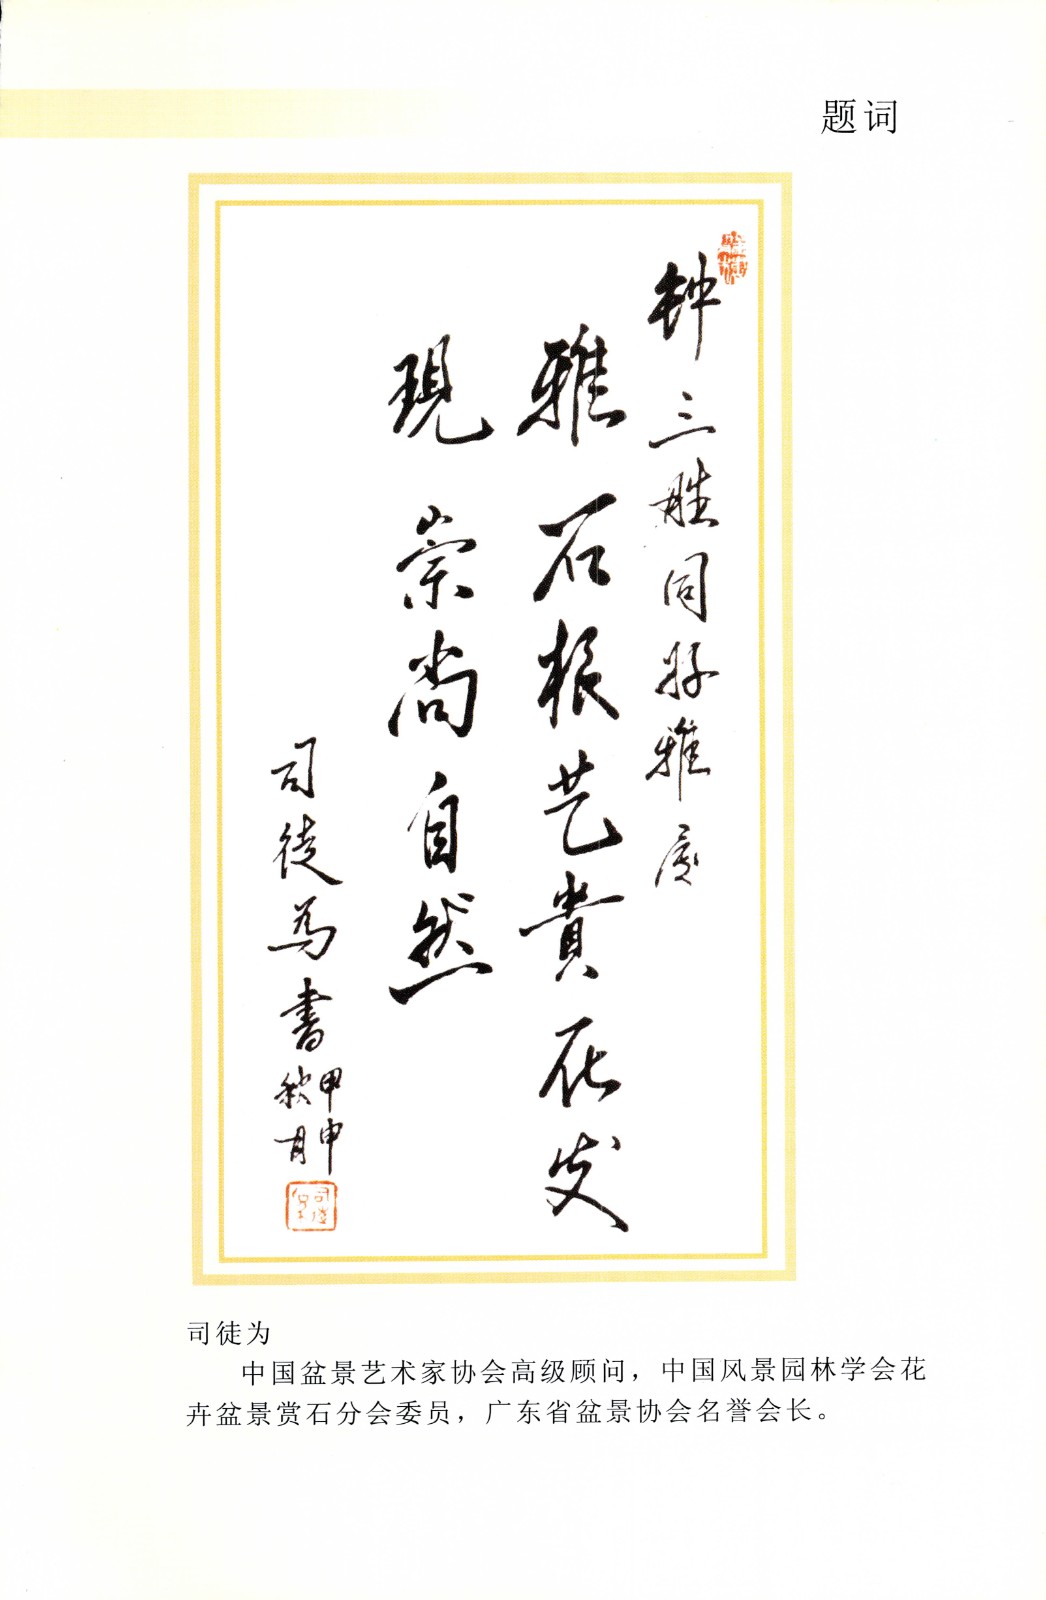 题词
钟三胜同好雅属
雅石根艺貴在发
現崇尚自然
司徒為書
甲申
秋月
司徒为
中国盆景艺术家协会高级顾问，中国风景园林学会花
卉盆景赏石分会委员，广东省盆景协会名誉会长。